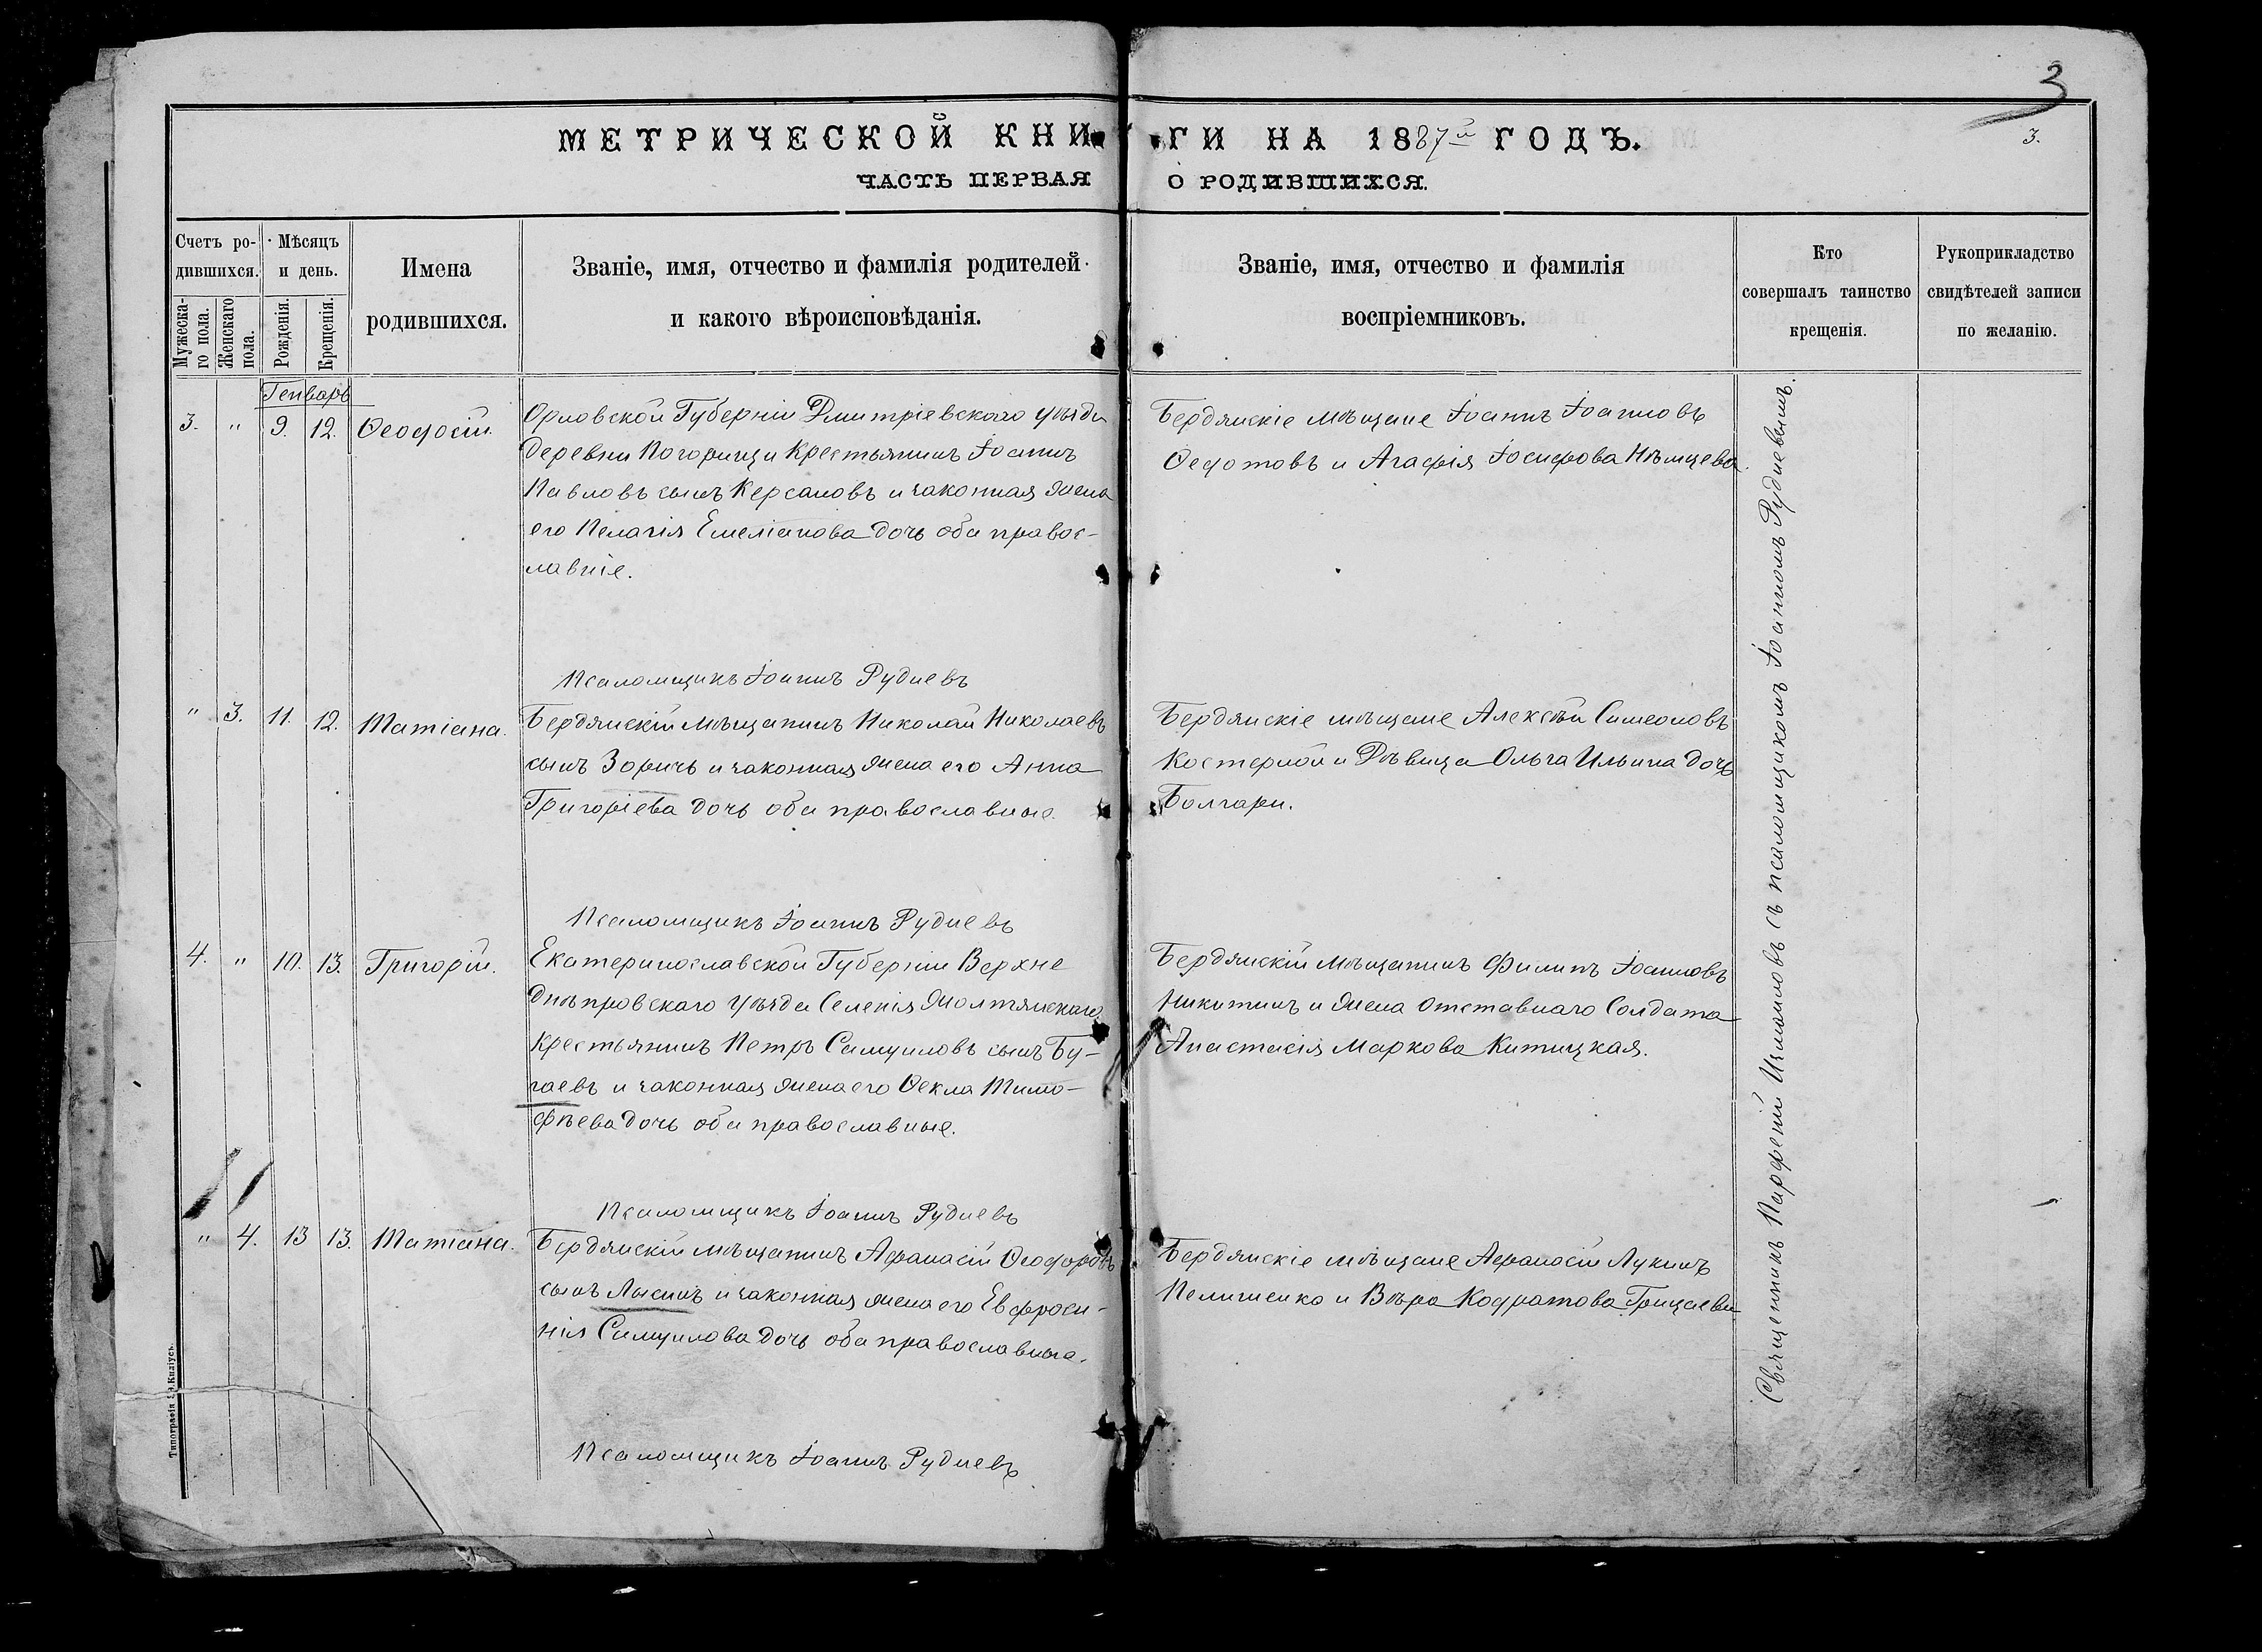 3
МЕТРИЧЕСКОЙ КНИГИ НА 1887й ГОДЪ.
3.
ЧАСТЬ ПЕРВАЯ О РОДИВШИХСЯ.
Счетъ родившихся.
Мужескаго пола.
Женскаго пола.
Мѣсяцъ и день.
Рожденія.
Крещенія.
Имена
родившихся.
Званіе, имя, отчество и фамилія родителей
и какого вѣроисповѣданія.
Званіе, имя, отчество и фамилія
воспріемниковъ.
Кто
совершалъ таинство
крещенія.
Рукоприкладство
свидѣтелей записи
по желанію.
Генварь
3. " 9. 12. Ѳеодосій.
Орловской Губерніи Дмитріевскаго уѣзда
деревни Погорищи Крестьянинъ Іоаннъ
Павловъ сынъ Керсановъ и законная жена
его Пелагія Емеліанова дочь оба правос-
лавніе.
Бердянскіе мѣщане Іоаннъ Іоанновъ
Ѳедотовъ и Агафія Іосифова Нѣмцева.
Псаломщикъ Іоаннъ Рудневъ
" 3. 11. 12. Татіана.
Бердянскій мѣщанинъ Николай Николаевъ
сынъ Зоричъ и законная жена его Анна
Григоріева дочь оба православные.
Бердянскіе мѣщане Алексѣй Симеоновъ
Костерной и Дѣвица Ольга Ильина дочь
Болгари.
Псаломщикъ Іоаннъ Рудневъ
4. " 10. 13. Григорій.
Екатеринославской Губерніи Верхне
днѣпровскаго уѣзда Селенія Жолтянскаго
Крестьянинъ Петръ Самуиловъ сынъ Бу-
гаевъ и законная жена его Ѳекла Тимо-
фѣева дочь оба православные.
Бердянскій мѣщанинъ Филипъ Іоанновъ
Никитинъ и жена отставнаго Солдата
Анастасія Маркова Китицкая.
Псаломщикъ Іоаннъ Рудневъ
" 4. 13 13. Татіана.
Бердянскій мѣщанинъ Афанасій Ѳеодоровъ
сынъ Лысинъ и законная жена его Евфроси-
нія Самуилова дочь оба православные.
Бердянскіе мѣщане Афанасій Лукинъ
Пелишенко и Вѣра Кодратова Грицаева
Псаломщикъ Іоаннъ Рудневъ
Священникъ Парфеній съ псаломщикомъ Іоанномъ Рудневымъ.
Типографія Э. Киліусъ.